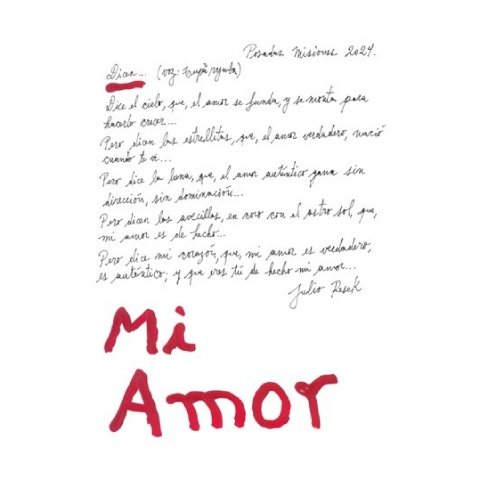 Posadas Misiones 2024.
Dicen... (voz:
Dice el cielo, que, el amor se funda, y se monta para
hacerlo crecer...
Pero dicen las estrellitas, que, el amor verdadero, nació
cuando te vi...
Pero dice la luna, que, el amor auténtico gana sin
dirección, sin dominación...
Pero dicen las avecillas, en coro con el astro sol, que,
mi amor es de hecho...
Pero dice mi corazón, que, mi amor es verdadero,
es auténtico, y que eres tú de hecho mi amor...
Julio Resek
Mi
Amor